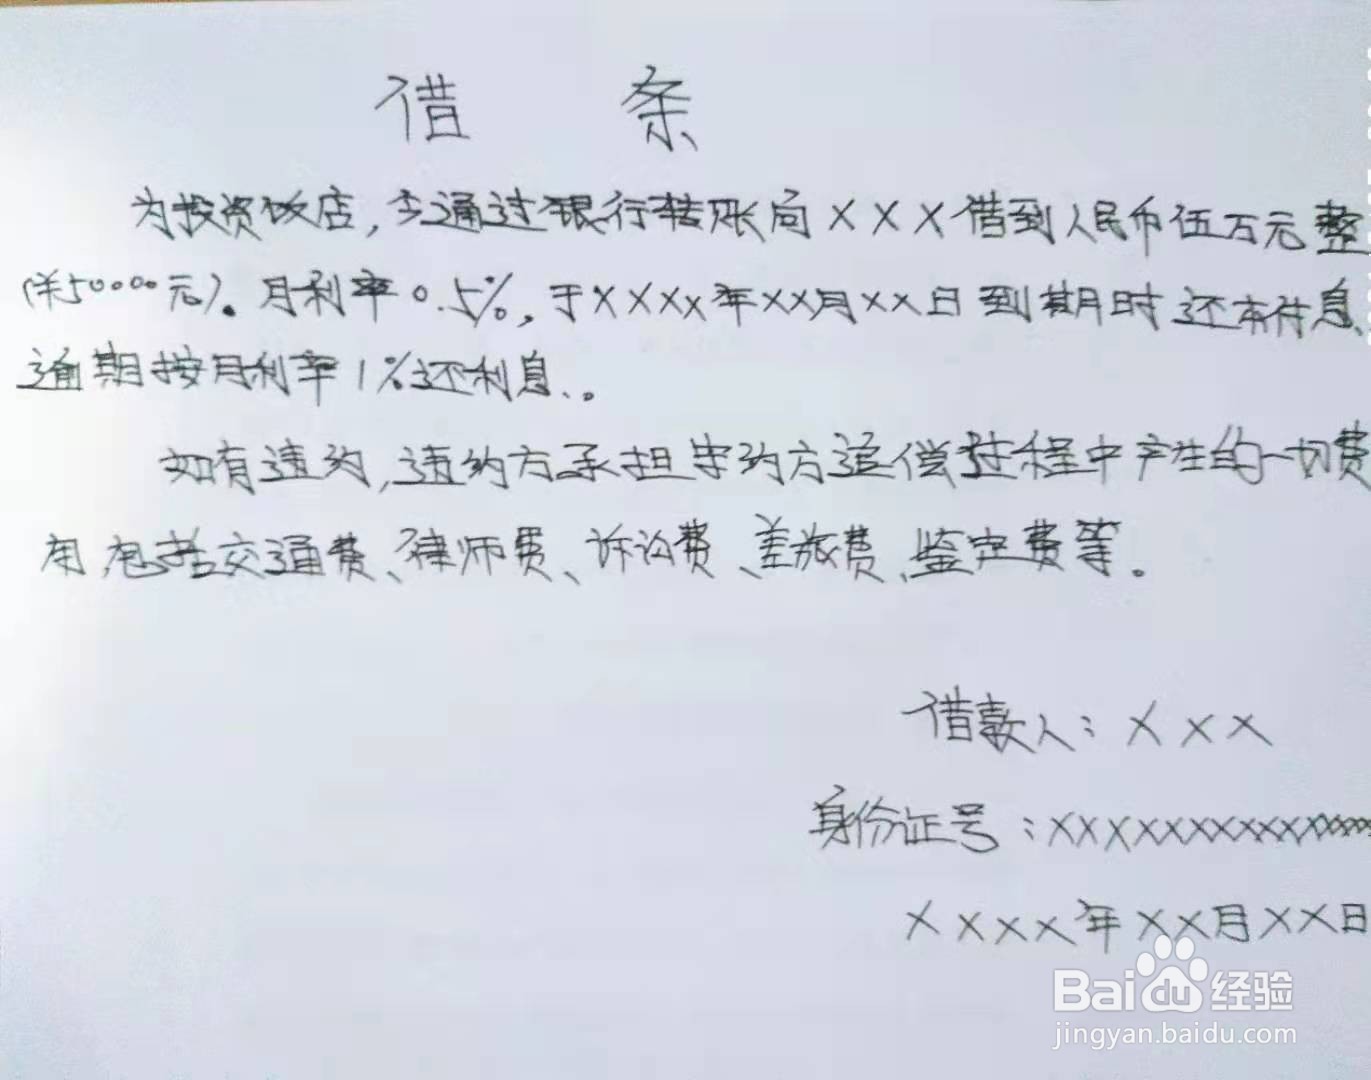 借 条
为投资饭店,今通过银行转账向XXX借到人民币伍万元整
(¥50000元)。月利率0.5%,于XXXX年XX月XX日到期时还本付息,
逾期按月利率1%还利息。
如有违约,违约方承担守约方追偿过程中产生的一切费
用,包括交通费、律师费、诉讼费、差旅费、鉴定费等。
借款人:XXX
身份证号:XXXXXXXXXXXXXXXXXX
XXXX年XX月XX日
Baidu经验
jingyan.baidu.com